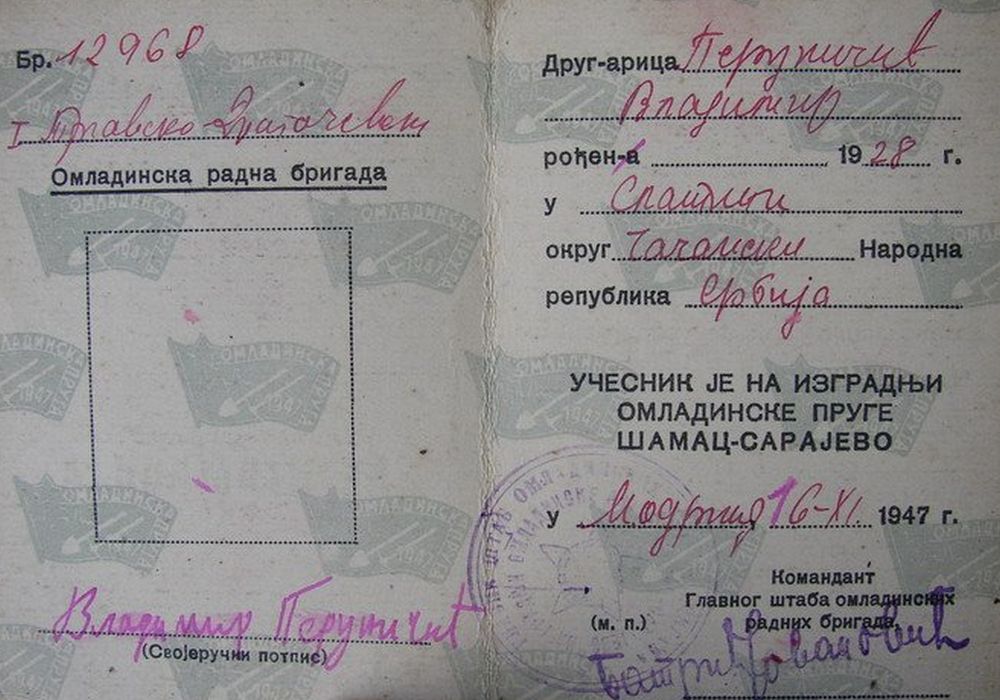 Бр. 12968
I Трнавско-Драгачевска
Омладинска радна бригада
Владимир Перуничић
(Својеручни потпис)
Друг-арица Перуничић
Владимир
рођен-а 1928 г.
у
округ Чачански Народна
република Србија
УЧЕСНИК ЈЕ НА ИЗГРАДЊИ
ОМЛАДИНСКЕ ПРУГЕ
ШАМАЦ-САРАЈЕВО
у 16-XI 1947 г.
Командант
Главног штаба омладинских
(м. п.) радних бригада,
Јовановић
ОМЛАДИНСКА ПРУГА
1947